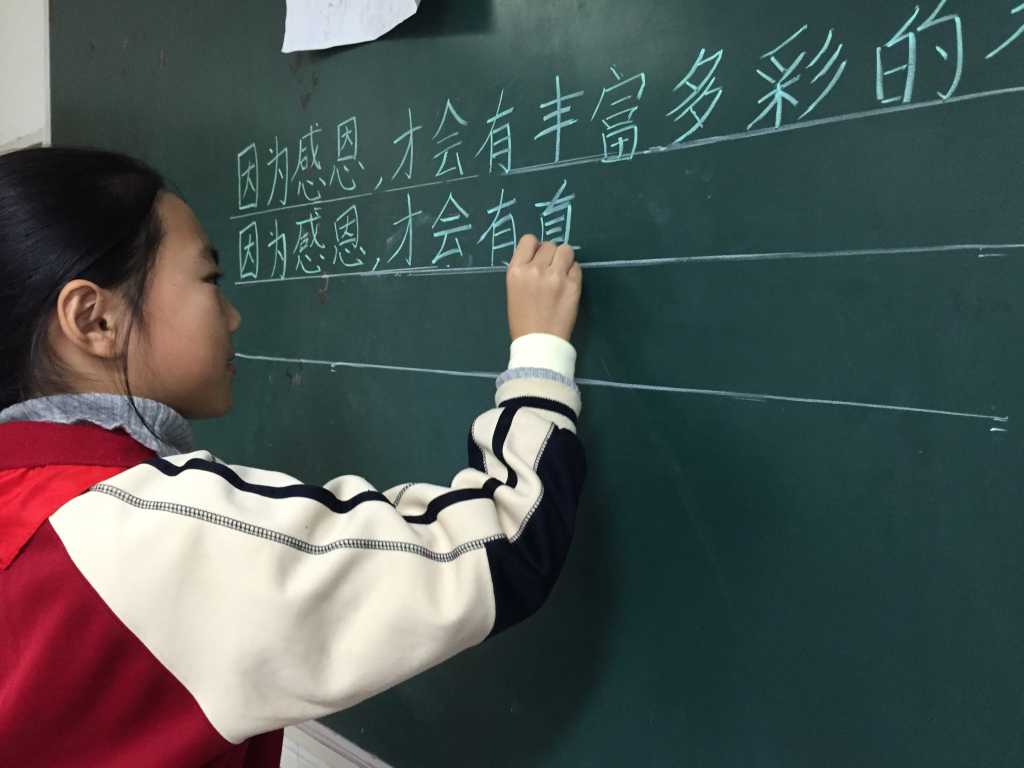 因为感恩,才会有丰富多彩的
因为感恩,才会有真